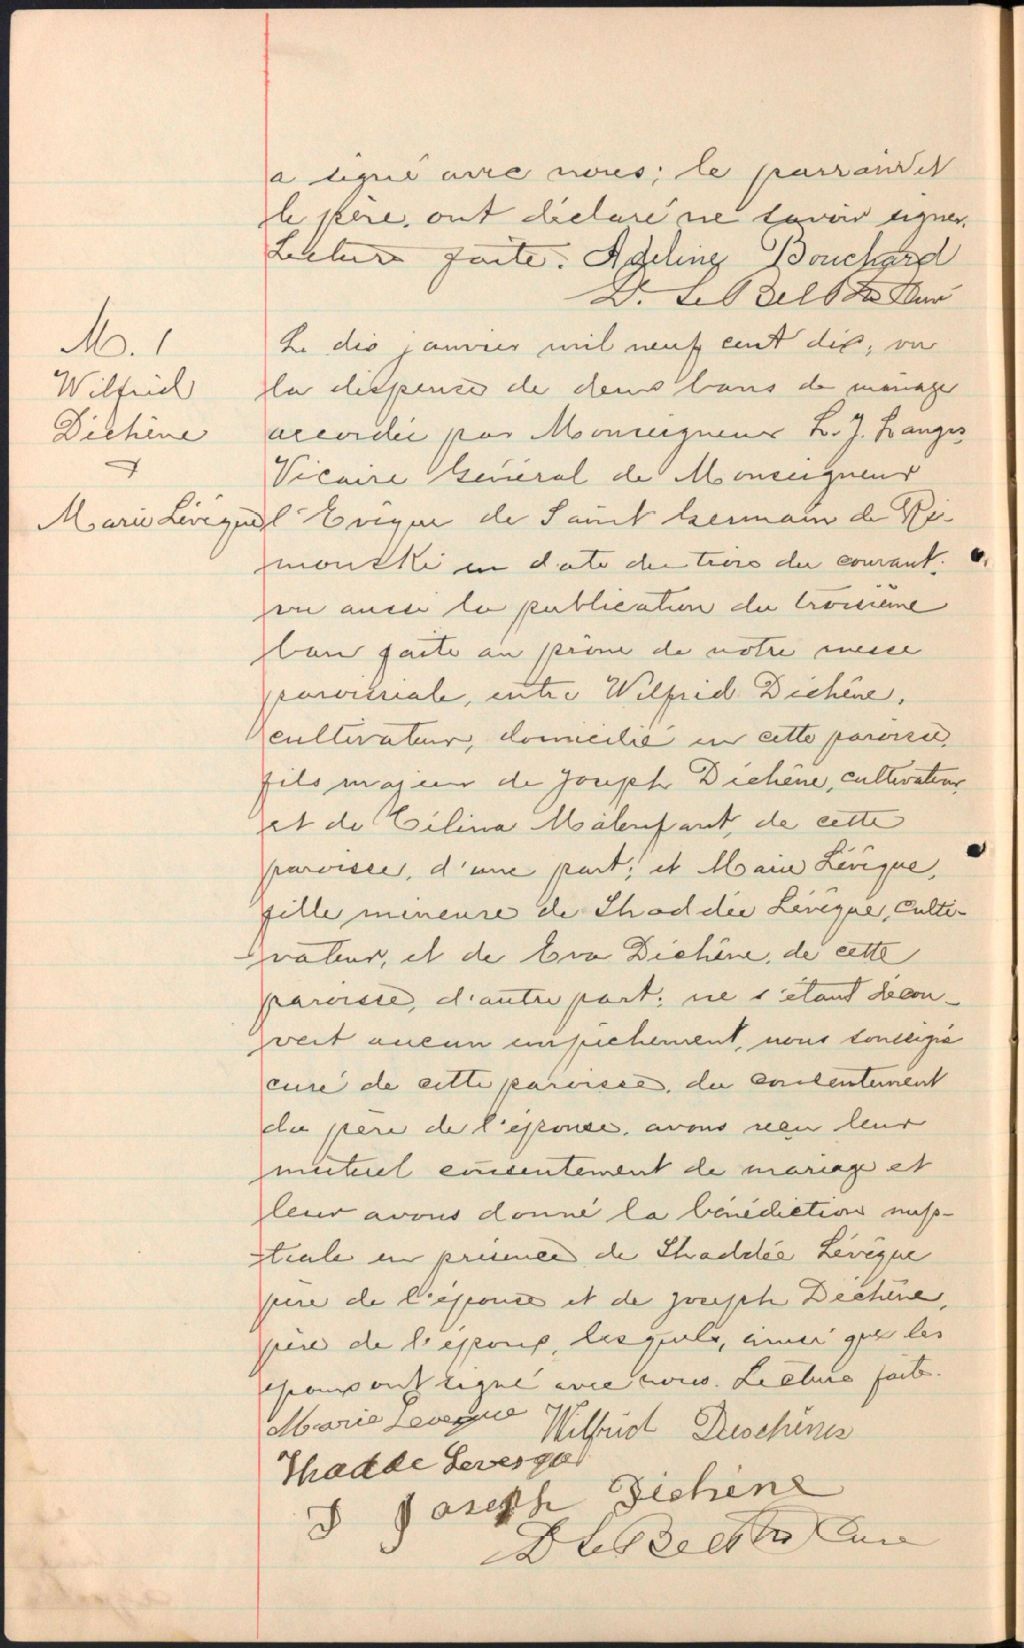 a signé avec nous; le parrain et
le père, ont déclaré ne savoir signer.
Lecture faite. Adeline Bouchard
D. Le Bel Ptre Curé
M. 1
Wilfrid
Dichêne
&
Marie Lévêque
Le dix janvier mil neuf cent dix, vu
la dispense de deux bans de mariage
accordée par Monseigneur L. J. Langis,
Vicaire Général de Monseigneur
l'Evêque de Saint Germain de Ri-
mouski en date du trois du courant;
vu aussi la publication du troisième
ban faite au prône de notre messe
paroissiale, entre Wilfrid Dichêne,
cultivateur, domicilié en cette paroisse,
fils majeur de Joseph Dichêne, cultivateur,
et de Célina Málenfant, de cette
paroisse, d'une part; et Marie Lévêque,
fille mineure de Thaddée Lévêque, culti-
-vateur, et de Eva Dichêne, de cette
paroisse, d'autre part; ne s'étant décou-
vert aucun empêchement, nous soussigné
curé de cette paroisse, du consentement
du père de l'épouse, avons reçu leur
mutuel consentement de mariage et
leur avons donné la bénédiction nup-
-tiale en présence de Thaddée Lévêque
père de l'épouse et de Joseph Dichêne,
père de l'époux, lesquels, ainsi que les
époux ont signé avec nous. Lecture faite.
Marie Leveque Wilfrid Deschênes
Thadde Levesque
J Joseph Dichene
D Le Bel Ptre Curé